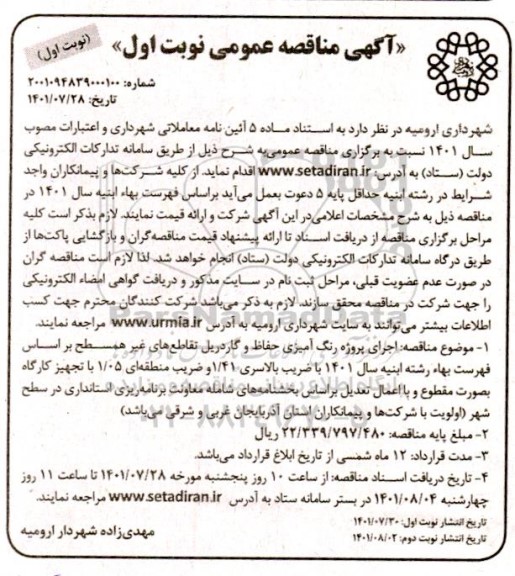 «آگهی مناقصه عمومی نوبت اول»
(نوبت اول)
شماره: ۲۰۰۱۰۹۴۸۳۹۰۰۰۱۰۰
تاریخ: ۱۴۰۱/۰۷/۲۸
شهرداری ارومیه در نظر دارد به استناد ماده ۵ آئین نامه معاملاتی شهرداری و اعتبارات مصوب
سال ۱۴۰۱ نسبت به برگزاری مناقصه عمومی‌به شرح ذیل از طریق سامانه تدارکات الکترونیکی
دولت (ستاد) به آدرس: www.setadiran.ir اقدام نماید. از کلیه شرکت‌ها و پیمانکاران واجد
شرایط در رشته ابنیه حداقل پایه ۵ دعوت بعمل می‌آید براساس فهرست بهاء ابنیه سال ۱۴۰۱ در
مناقصه ذیل به شرح مشخصات اعلامی‌در این آگهی شرکت و ارائه قیمت نمایند. لازم بذکر است کلیه
مراحل برگزاری مناقصه از دریافت اسناد تا ارائه پیشنهاد قیمت مناقصه‌گران و بازگشایی پاکت‌ها از
طریق درگاه سامانه تدارکات الکترونیکی دولت (ستاد) انجام خواهد شد. لذا لازم است مناقصه گران
در صورت عدم عضویت قبلی، مراحل ثبت نام در سایت مذکور و دریافت گواهی امضاء الکترونیکی
را جهت شرکت در مناقصه محقق سازند. لازم به ذکر می‌باشد شرکت کنندگان محترم جهت کسب
اطلاعات بیشتر می‌توانند به سایت شهرداری ارومیه به آدرس www.urmia.ir مراجعه نمایند.
۱- موضوع مناقصه: اجرای پروژه رنگ آمیزی حفاظ و گاردریل تقاطع‌های غیر همسطح بر اساس
فهرست بهاء رشته ابنیه سال ۱۴۰۱ با ضریب بالاسری ۱/۴۱ و ضریب منطقه‌ای ۱/۰۵ با تجهیز کارگاه
بصورت مقطوع و با اعمال تعدیل براساس بخشنامه‌های شامله معاونت برنامه‌ریزی استانداری در سطح
شهر (اولویت با شرکت‌ها و پیمانکاران استان آذربایجان غربی و شرقی می‌باشد)
۲- مبلغ پایه مناقصه: ۲۲/۳۳۹/۷۹۷/۴۸۰ ریال
۳- مدت قرارداد: ۱۲ ماه شمسی از تاریخ ابلاغ قرارداد می‌باشد.
۴- تاریخ دریافت اسناد مناقصه: از ساعت ۱۰ روز پنجشنبه مورخه ۱۴۰۱/۰۷/۲۸ تا ساعت ۱۱ روز
چهارشنبه ۱۴۰۱/۰۸/۰۴ در بستر سامانه ستاد به آدرس www.setadiran.ir مراجعه نمایند.
تاریخ انتشار نوبت اول: ۱۴۰۱/۰۷/۳۰
تاریخ انتشار نوبت دوم: ۱۴۰۱/۰۸/۰۲
مهدی‌زاده شهردار ارومیه
ParsNamadData